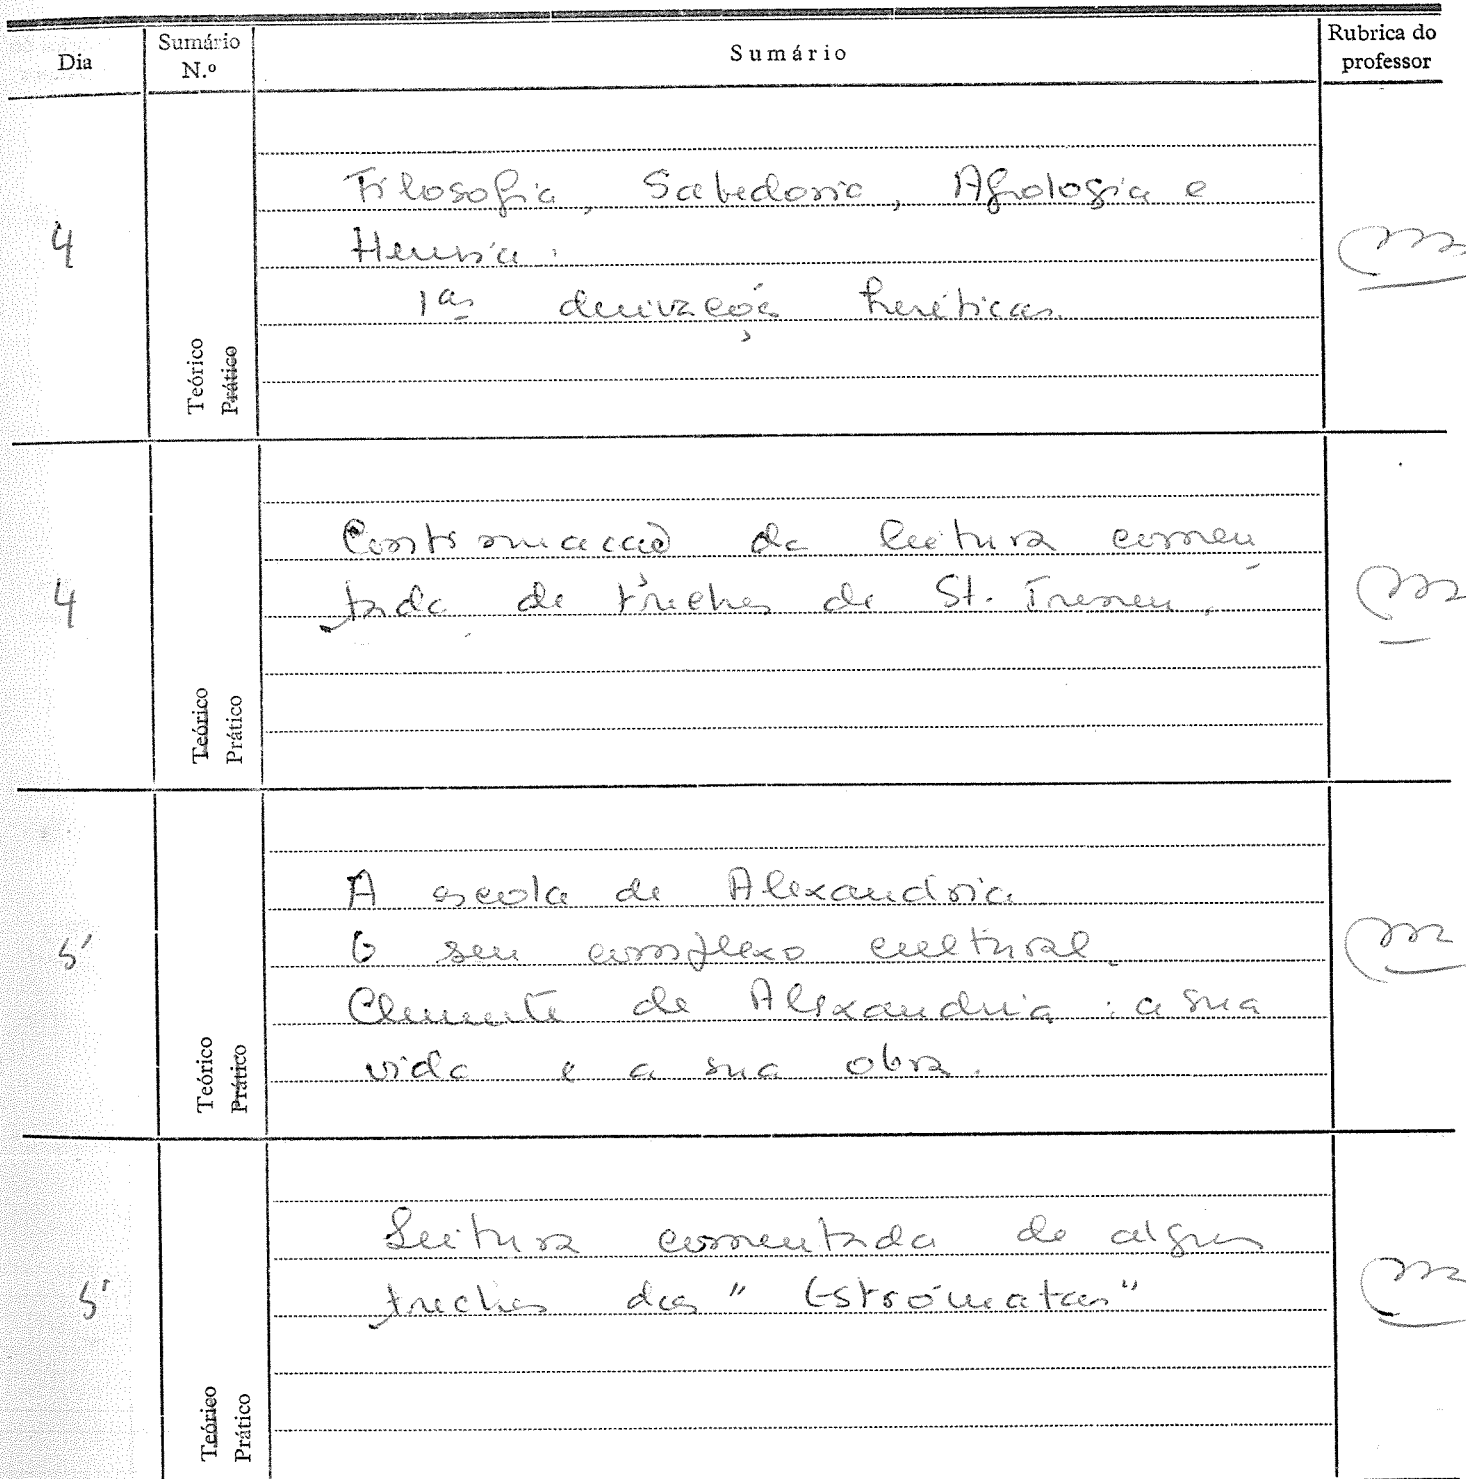 Dia Sumário N.º Sumário Rubrica do professor
4
Filosofia, Sabedoria, Apologia e
Heresia.
1as derivações heréticas.
Teórico
Prático
4
Continuação da leitura comen
tada de trechos de St. Ireneu.
Teórico
Prático
5
A escola de Alexandria
O seu complexo cultural.
Clemente de Alexandria : a sua
vida e a sua obra.
Teórico
Prático
5
Leitura comentada de alguns
trechos das "Estrómatas"
Teórico
Prático